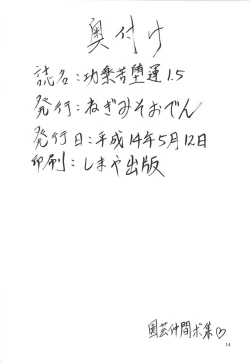 奥付け
誌名:功樂苦堕運1.5
発行:ねぎみそおでん
発行日:平成14年5月12日
印刷:しまや出版
園芸仲間ボ集♡
14